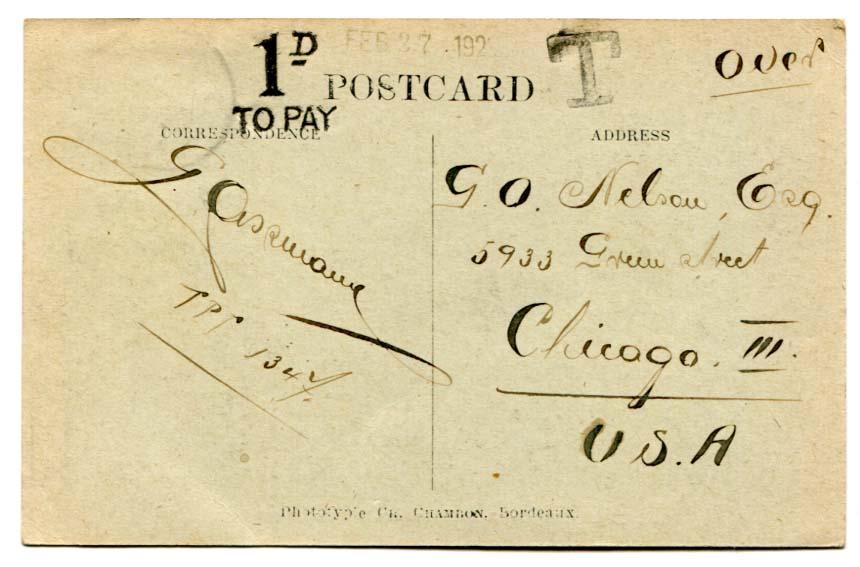 1D
TO PAY
FEB 27 192
T
Over
POSTCARD
CORRESPONDENCE
ADDRESS
G Assmann
TPT 1347.
G. O. Nelson, Esq.
5933 Green street
Chicago. Ill.
U S. A
Phototypie CH. CHAMBON, Bordeaux.